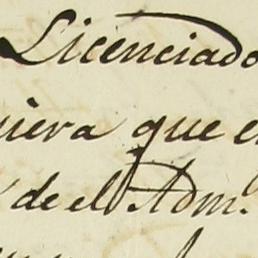 Licenciado
uiera que e
de el Adm.